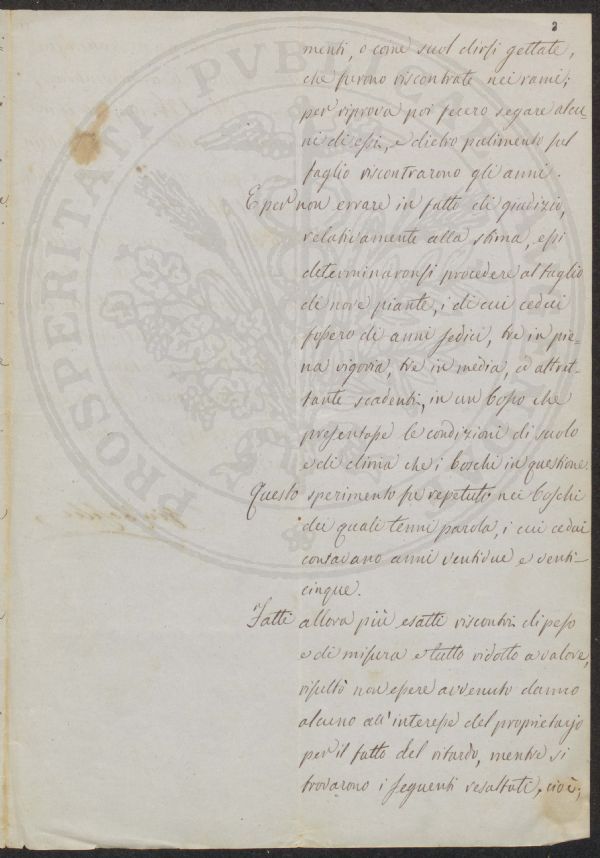 3
menti, o come suol dirsi gettate,
che furono riscontrate nei rami;
per riprova poi fecero segare alcu
ni di essi, e dietro pulimento sul
taglio riscontrarono gli anni.
E per non errare in fatto di giudizio,
relativamente alla stima, essi
determinaronsi procedere al taglio
di nove piante, i di cui cedui
fossero di anni sedici, tre in pie-
na vigoria, tre in media, ed altret-
tante scadenti, in un bosco che
presentasse le condizioni di suolo
e di clima che i boschi in questione.
Questo sperimento fu repetuto nei boschi
dei quali tenni parola, i cui cedui
contavano anni ventidue e venti-
cinque.
Fatti allora più esatti riscontri di peso
e di misura e tutto ridotto a valore,
risultò non essere avvenuto danno
alcuno all'interesse del proprietario
per il fatto del ritardo, mentre si
trovarono i seguenti resultati, cioè;
PROSPERITATI PUBLICAE